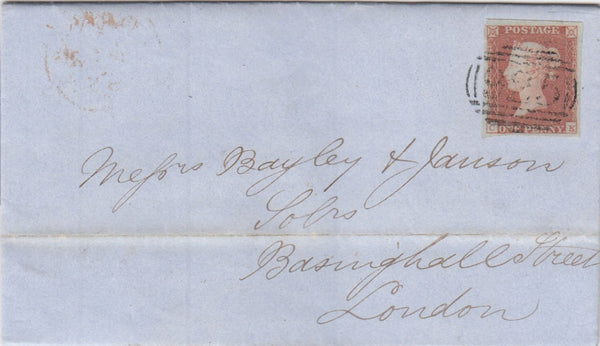 POSTAGE
ONE PENNY
Messrs Bayley & Janson
Solrs
Basinghall Street
London